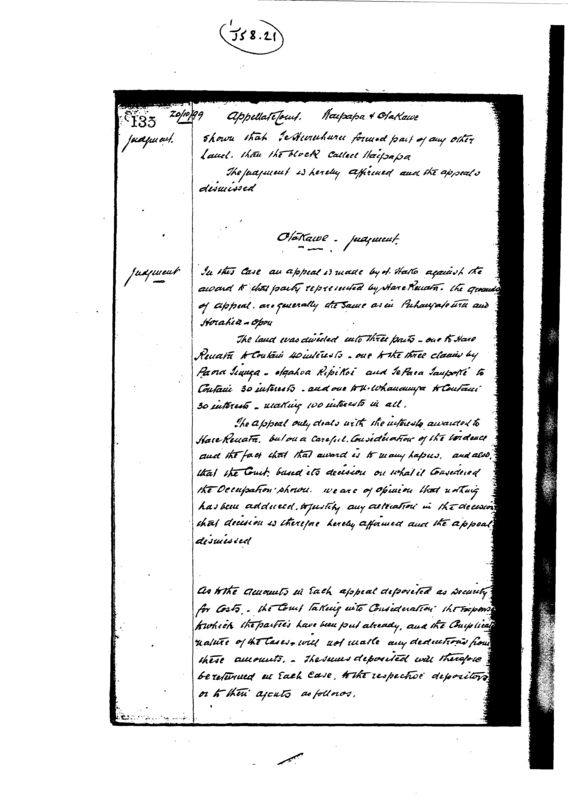 J58.21
135 20/10/99 Appellate Court. Waipapa & Otakawe
Judgment. Shown that Te Huruhuru formed part of any other
Land. than the block called Waipapa
The judgment is hereby affirmed and the appeals
dismissed
Otakawe - judgment.
Judgment In this case an appeal is made by H. against the
award to that party represented by Hare Renata. the grounds
of appeal. are generally the same as in and
Horahia - opou
The land was divided into three parts - one to Hare
Renata to contain 40 interests - one to the three claims by
Paora Tinunga - Ngahoa Ripikoi and Te Para to
contain 30 interests - and one to W. Whanaunga to contain
30 interests - making 100 interests in all.
The appeal only deals with the interests awarded to
Hare Renata. but on a careful consideration of the evidence
and the fact that that award is to many hapus. and also,
that the Court, based its decision on what it considered
the occupation shown. we are of opinion that nothing
has been adduced, to justify any alteration in the decision
that decision is therefore hereby affirmed and the appeal
dismissed
As to the amounts in each appeal deposited as security
for costs. - the Court taking into consideration the expense
to which the parties have been put already, and the complicated
nature of the cases, will not make any deductions from
these amounts. - The sums deposited will therefore
be returned in each case. to the respective depositors
or to their agents as follows.